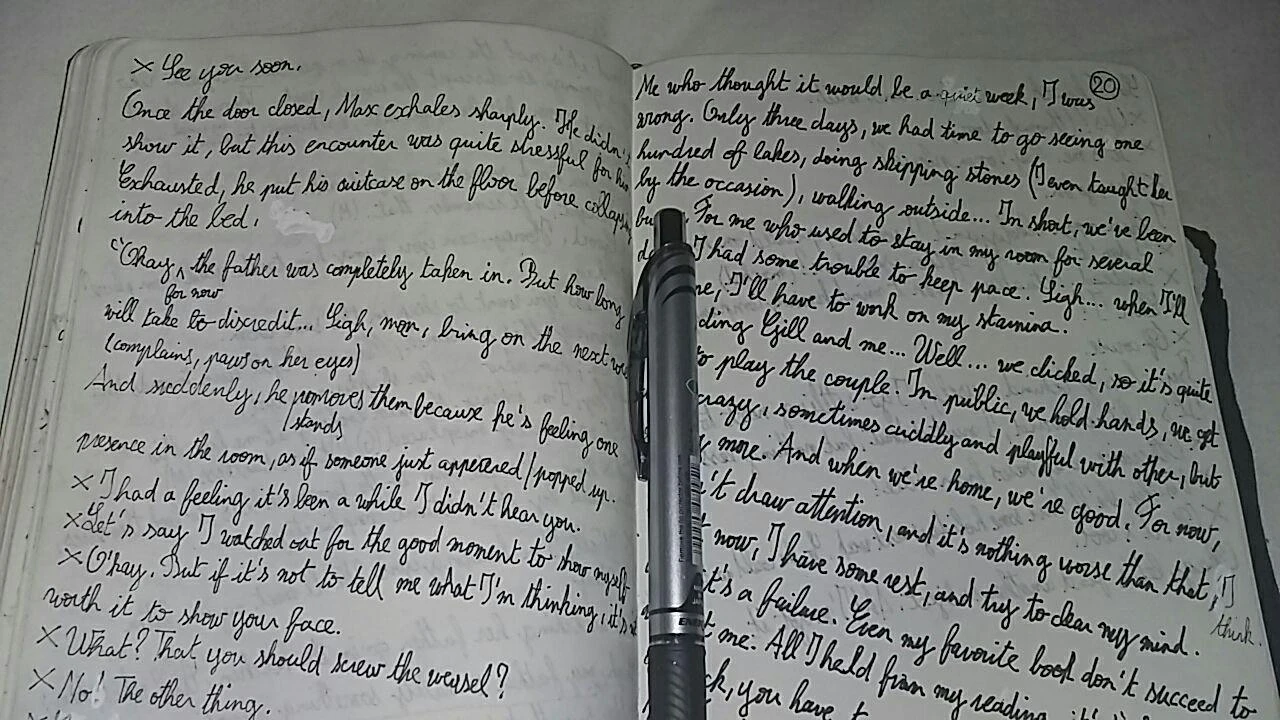 × See you soon.
Once the door closed, Max exhales sharply. He didn'
show it, but this encounter was quite stressful for
Exhausted, he put his suitcase on the floor before
into the bed.
"Okay, the father was completely taken in. But how long
for now
will take to discredit... Sigh, man, bring on the next
(complains, paws on her eyes)
And suddenly, he removes them because he's feeling one
/stands
presence in the room, as if someone just appeered/popped up.
× I had a feeling it's been a while I didn't hear you.
× Let's say I watched out for the good moment to show myself
× O'kay. But if it's not to tell me what I'm thinking, it's
worth it to show your face.
× What? That you should screw the weasel?
× No! The other thing.
20
Me who thought it would be a quiet week, I was
wrong. Only three days, we had time to go seeing one
hundred of lakes, doing skipping stones (I even taught her
by the occasion), walking outside... In short, we've been
For me who used to stay in my room for several
I had some trouble to keep pace. Sigh... when I'll
I'll have to work on my stamina.
Gill and me... Well... we clicked, so it's quite
to play the couple. In public, we hold hands, we opt
crazy, sometimes cuddly and playful with other, but
more. And when we're home, we're good. For now,
't draw attention, and it's nothing worse than that, I
think.
now, I have some rest, and try to clear my mind.
it's a failure. Even my favorite book don't succeed to
me. All I held from my reading,
you have